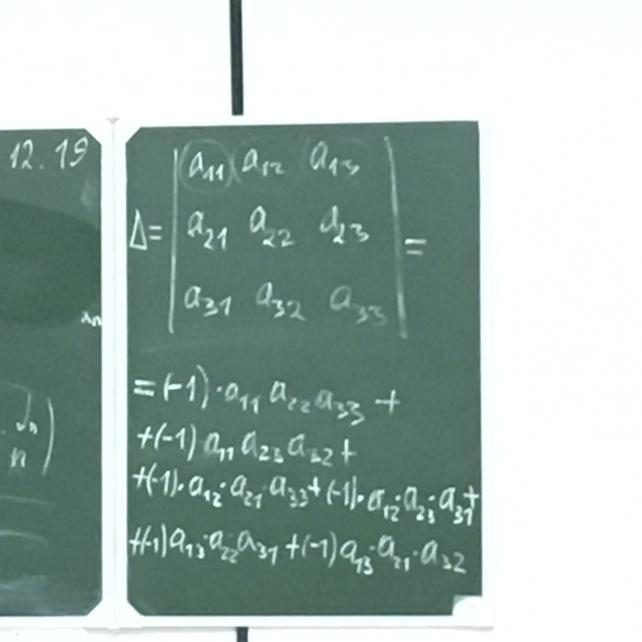 12.19
a₁₁ a₁₂ a₁₃
Δ= a₂₁ a₂₂ a₂₃ =
a₃₁ a₃₂ a₃₃
xₙ
=(-1)·a₁₁ a₂₂ a₃₃ +
+(-1) a₁₁ a₂₃ a₃₂ +
+(-1)·a₁₂·a₂₁·a₃₃+(-1)·a₁₂·a₂₃·a₃₁+
+(-1)a₁₃·a₂₂·a₃₁+(-1)a₁₃·a₂₁·a₃₂
n